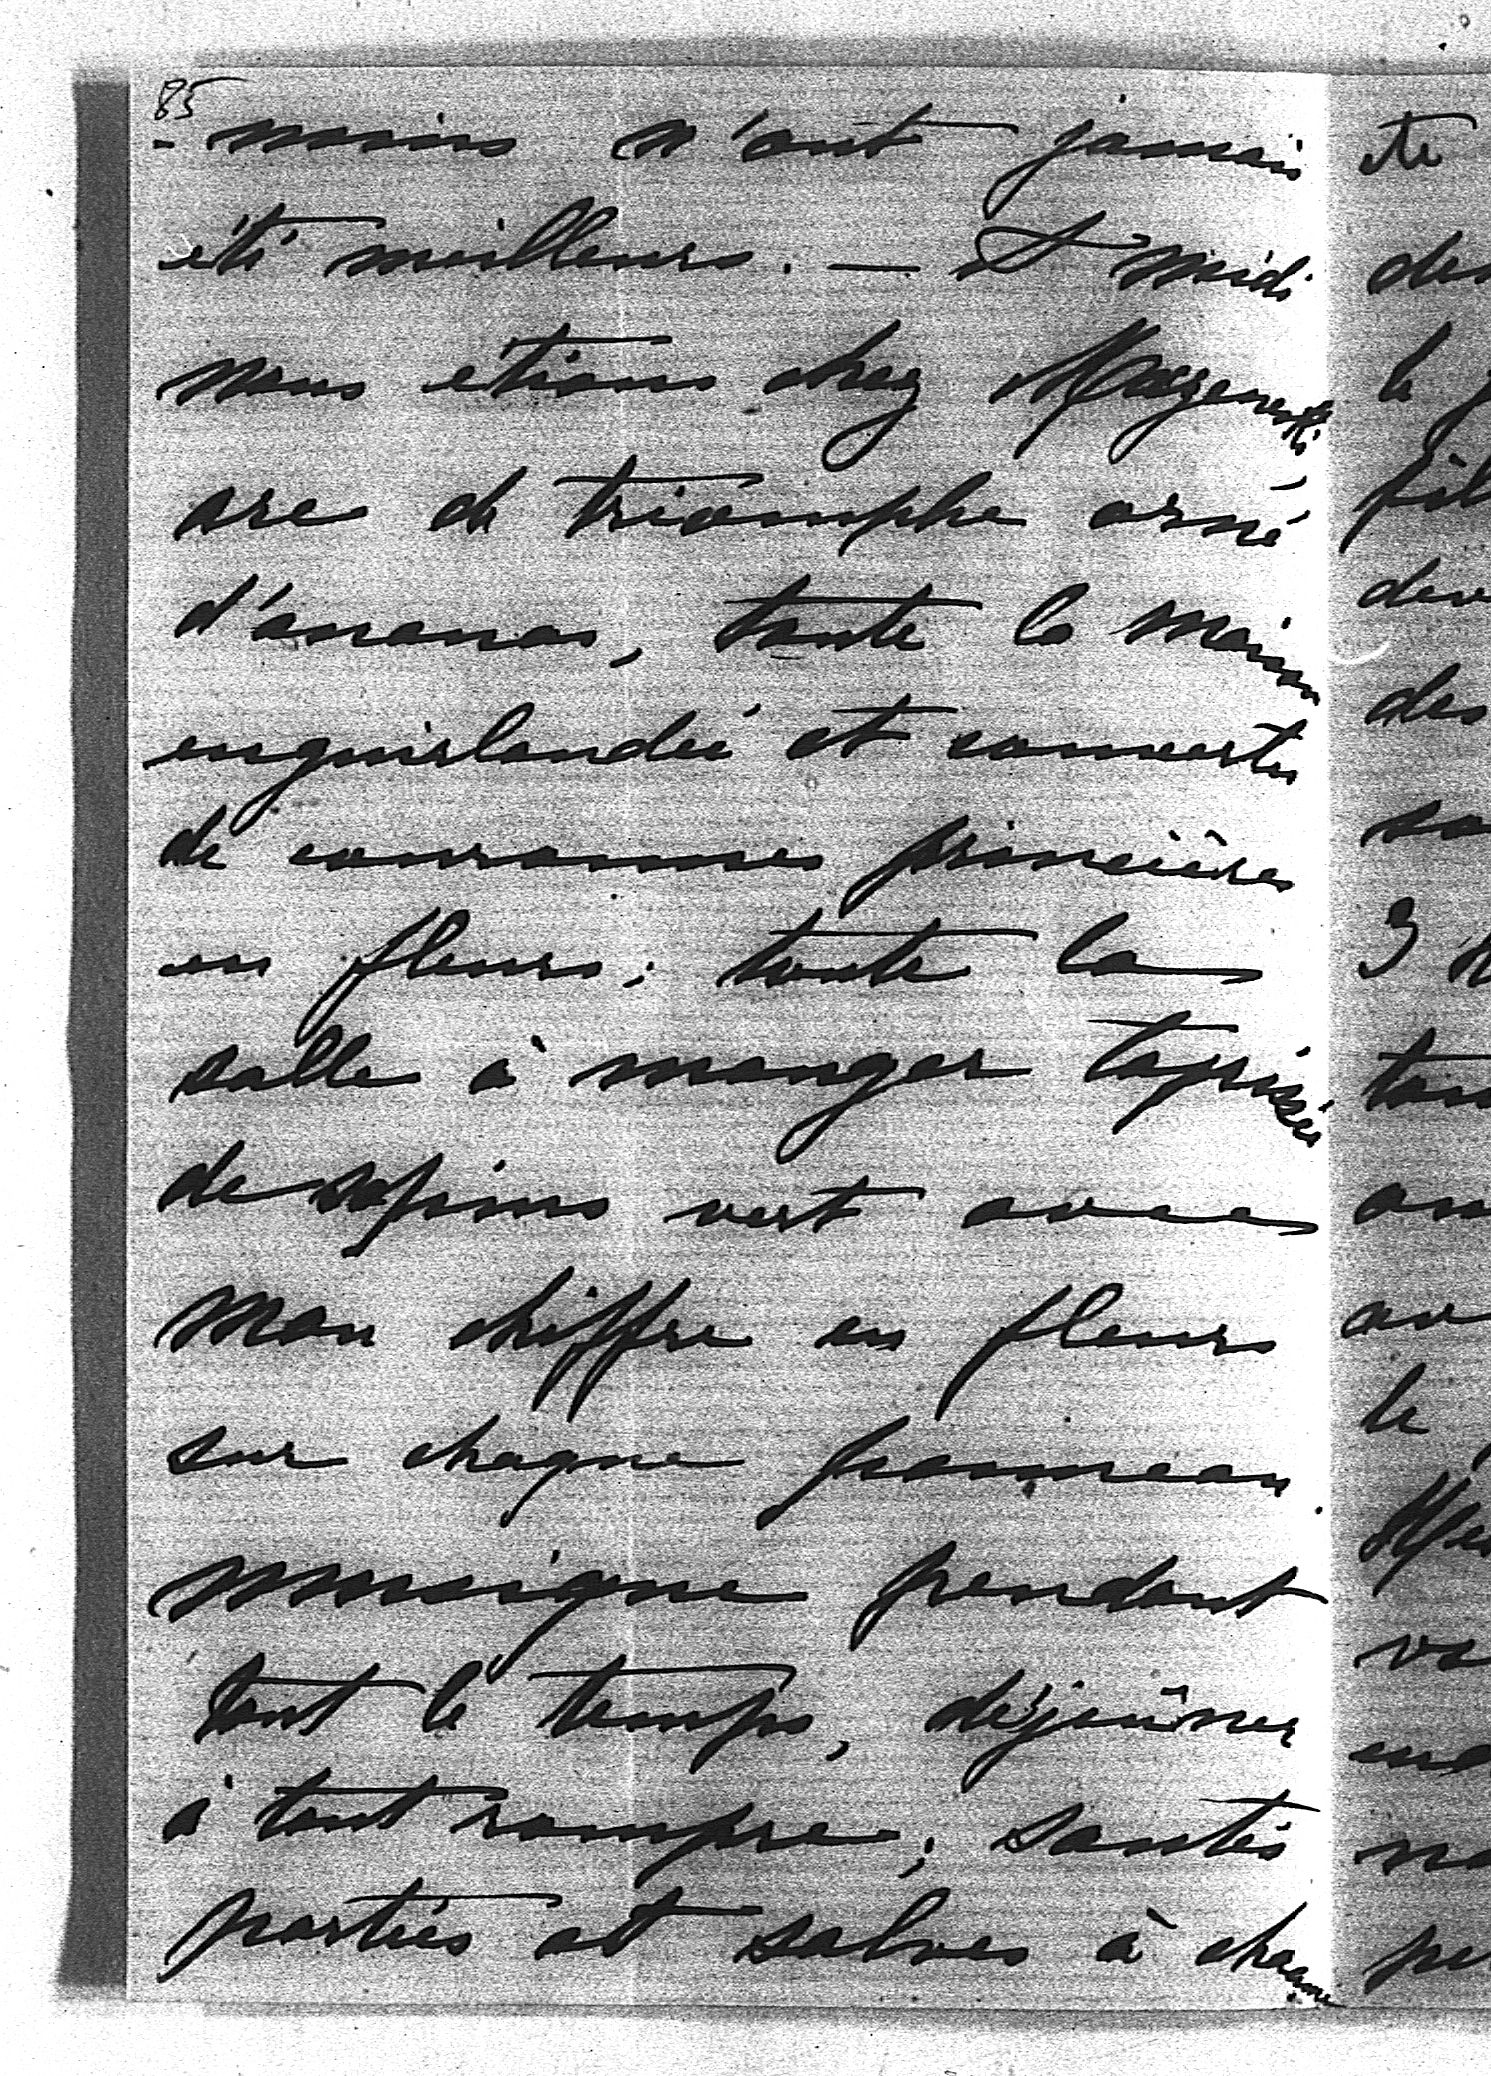 85
- moins n'ont jamais
été meilleurs. — A midi
nous étions chez
arc de triomphe orné
d'ananas, toute la maison
enguirlandée et couvertes
de couronnes princières
en fleurs; toute la
salle à manger tapissée
de sapins vert avec
mon chiffre en fleurs
sur chaque panneau.
musique pendant
tout le temps, déjeûner
à tout rompre; santés
portées et salves à chaque
été
le
des
3
le